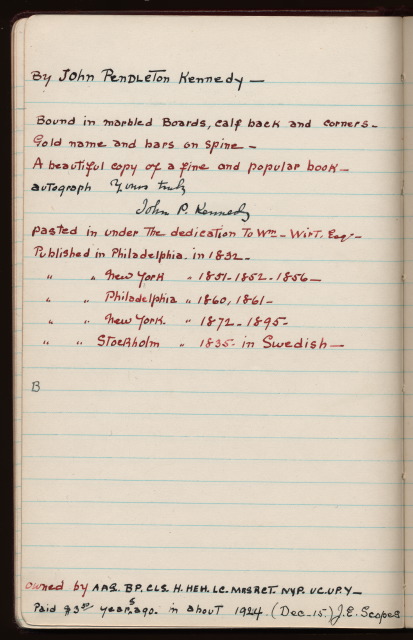 By John Pendleton Kennedy —
Bound in marbled Boards, calf back and corners -
Gold name and bars on spine -
A beautiful copy of a fine and popular book -
autograph Yours truly
John P. Kennedy
pasted in under the dedication To Wm - Wirt. Esqr -
Published in Philadelphia. in 1832 -
" " New York " 1851 - 1852 - 1856 —
" " Philadelphia " 1860, 1861 -
" " New York. " 1872 - 1895 -
" " Stockholm " 1835 - in Swedish —
B
owned by AAS. BP. CLS. H. HEH. LC. NYP. UC. UP. Y —
Paid $3 years ago. in about 1924. (Dec - 15.) J. E. Scopes